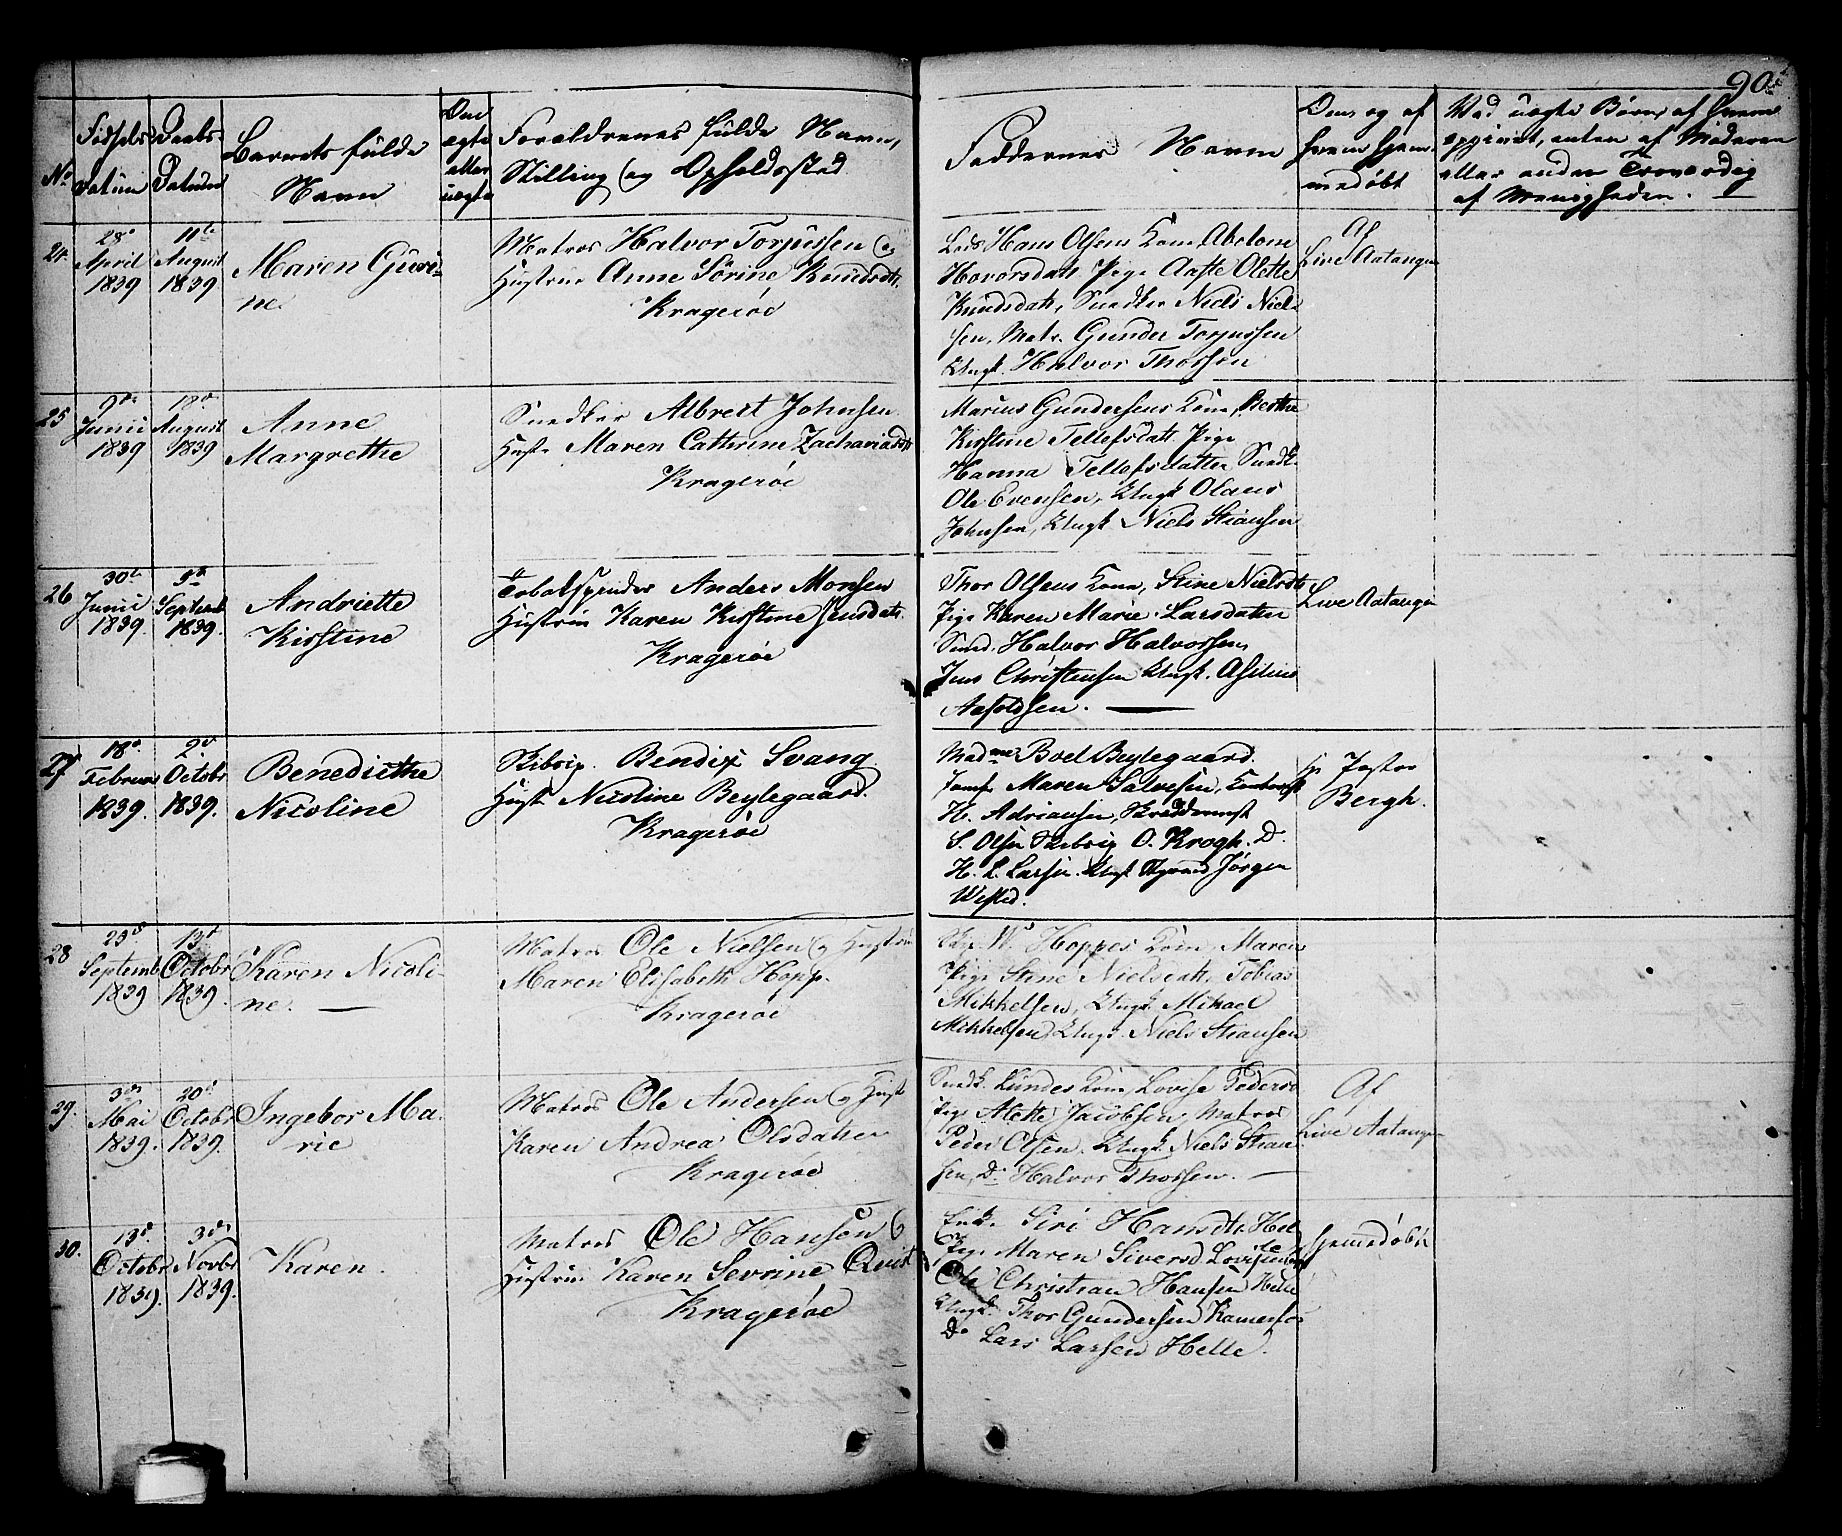 90
No
Fødsels Datum
Daabs Datum
Barnets fulde Navn
Om ægte eller uægte
Forældrenes fulde Navn, Stilling og Opholdssted
Faddernes Navn
Om og af hvem hjemmedøbt
Ved uægte Børn, af hvem
opgivet, enten af Moderen
eller anden Troværdig
af Menigheden.
24
28de April 1839
11te August 1839
Maren Guri-
ne.
Matros Halvor Torjussen og
Hustrue Anne Sørine Knudsdtr.
Kragerøe
Lods Hans Olsens Kone Abelone
Hovorsdatr Pige Aaste Olette
Knudsdatr, Snedker Niels Niel-
sen, Matr. Gunder Torjussen
Ungk. Halvor Thorsen
Af
Live Aatangen
25
9de Junii 1839
18de August 1839
Anne
Margrethe
Snedker Albrett Johnsen
Hustr Maren Cathrine Zachariasdtr
Kragerøe
Marius Gundersens Kone, Berthe
Kirstine Tellefsdatr Pige
Hanna Tellefsdatter Snedk.
Ole Evensen, Ungk Olaus
Johnsen, Ungk Niels Stiansen
26
30te Junii 1839.
5te Septemb 1839.
Andriette
Kirstine
Tobakspinder Anders Monsen
Hustrue Karen Kirstine Jensdatr.
Kragerøe
Thor Olsens Kone, Stine Nielsdtr
Pige Karen Marie Larsdatter
Smed. Halvor Halvorsen,
Jens Christensen Ungk.
Live Aatangen
27
18de Februar 1839.
2den Octobr 1839.
Benedicthe
Nicoline
Skibsip. Bendix Svang
Hustr Nicoline Beylegaard.
Kragerøe
Madme Boel Beylegaard.
Jomfr Maren Salvesen,
H. Adriansen,
S. Olsen O. Krogh. Do
H. L. Larsen. Jørgen
Hr Pastor
Bergh.
28
23de Septemb 1839
13de Octobr 1839.
Karen Nicoli-
ne.
Matros Ole Nielsen og Hustrue
Maren Elisabeth Hopp.
Kragerøe
W. Hoppes Kone, Maren
Pige Stine Nielsdatr, Tobias
Mikkelsen, Ungk. Mikael
Mikkelsen, Ungk. Niels Stiansen
29.
3die Mai 1839.
20de Octobr 1839.
Ingebor Ma-
rie
Matros Ole Andersen og Hust
Karen Andrea Olsdatter
Kragerøe
Snedk. Lundes Kone Lovise Peders.
Pige Alette Jacobsen, Matros
Peder Olsen. Ungk Niels Stian-
sen, Do Halvor Thorsen.
Af
Live Aatangen
30.
13de Octobr 1839.
3die Novbr 1839.
Karen.
Matros Ole Hansen og
Hustrue Karen Sevrine Qvist
Kragerøe
Enk. Siri Hansdtr. Hel
Pige Maren Siversd.
Ole Christian Hansen Helle
Ungk. Thor Gundersen
Do Lars Larsen Helle.
Hjemmedøbt